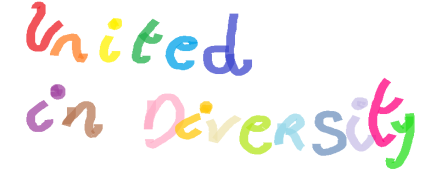 United
in Diversity